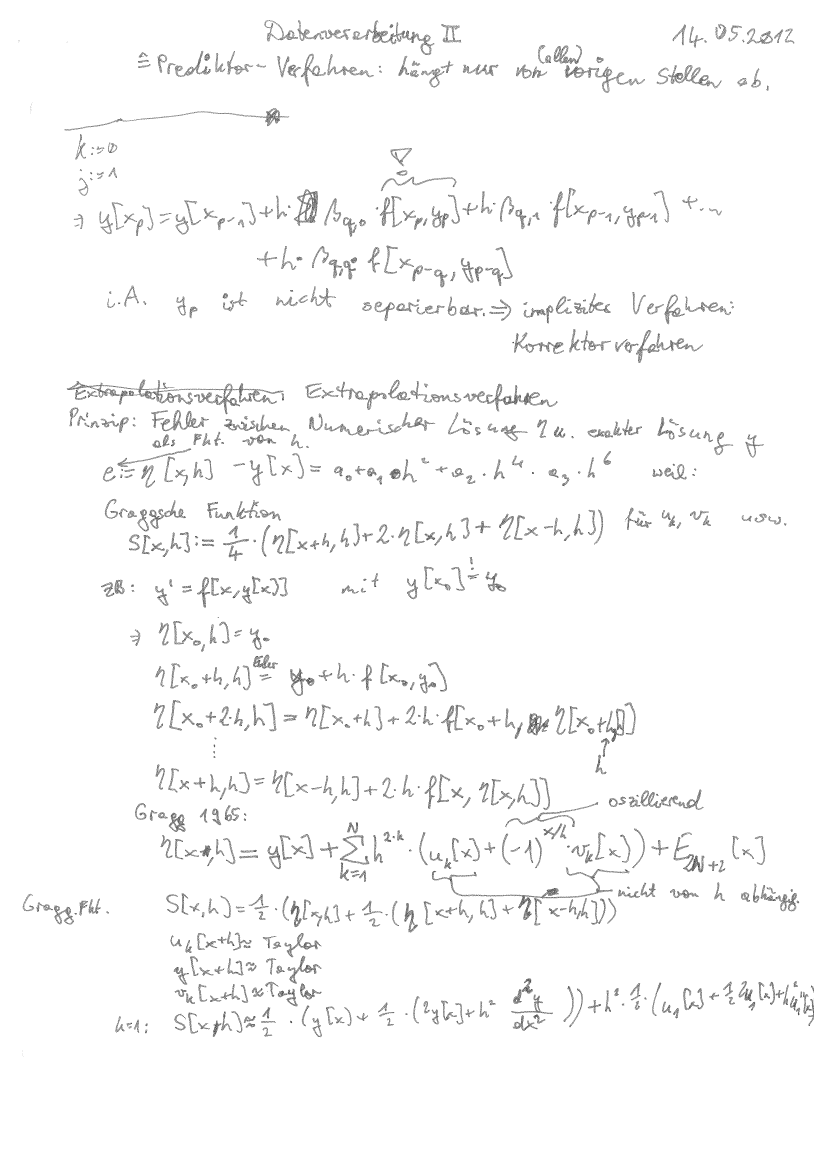 Datenverarbeitung II 14.05.2012
≙ Prediktor-Verfahren: hängt nur von (allen) vorigen Stellen ab.
k:=0
j:=1
⇒ y[x_p]=y[x_{p-1}]+h· β_{q,0}·f[x_p,y_p]+h·β_{q,1}·f[x_{p-1},y_{p-1}] +...
+h·β_{q,q}·f[x_{p-q},y_{p-q}]
i.A. y_p ist nicht separierbar. ⇒ implizites Verfahren:
Korrektorverfahren
Extrapolationsverfahren: Extrapolationsverfahren
Prinzip: Fehler zwischen Numerischer Lösung η u. exakter Lösung y
als Fkt. von h.
e:=η[x,h]-y[x]=a₀+a₁·h²+a₂·h⁴·a₃·h⁶ weil:
Graggsche Funktion
S[x,h]:=1/4·(η[x+h,h]+2·η[x,h]+η[x-h,h]) für u_k, v_k usw.
zB: y'=f[x,y[x]] mit y[x₀]=!y₀
⇒ η[x₀,h]=y₀
η[x₀+h,h] =Euler y₀+h·f[x₀,y₀]
η[x₀+2·h,h]=η[x₀+h]+2·h·f[x₀+h, η[x₀+h,h]]
↑
h
⋮
η[x+h,h]=η[x-h,h]+2·h·f[x,η[x,h]]
oszillierend
Gragg 1965:
η[x,h]=y[x]+∑_{k=1}^{N} h^{2·k}·(u_k[x]+(-1)^{x/h}·v_k[x])+E_{2N+2}[x]
nicht von h abhängig.
Gragg.Fkt. S[x,h]=1/2·(η[x,h]+1/2·(η[x+h,h]+η[x-h,h]))
u_k[x+h]≈Taylor
y[x+h]≈Taylor
v_k[x+h]≈Taylor
k=1: S[x,h]≈1/2·(y[x]+1/2·(2y[x]+h² d²y/dx²))+h²·1/2·(u₁[x]+1/2 2u₁[x]+h²u₁''[x]